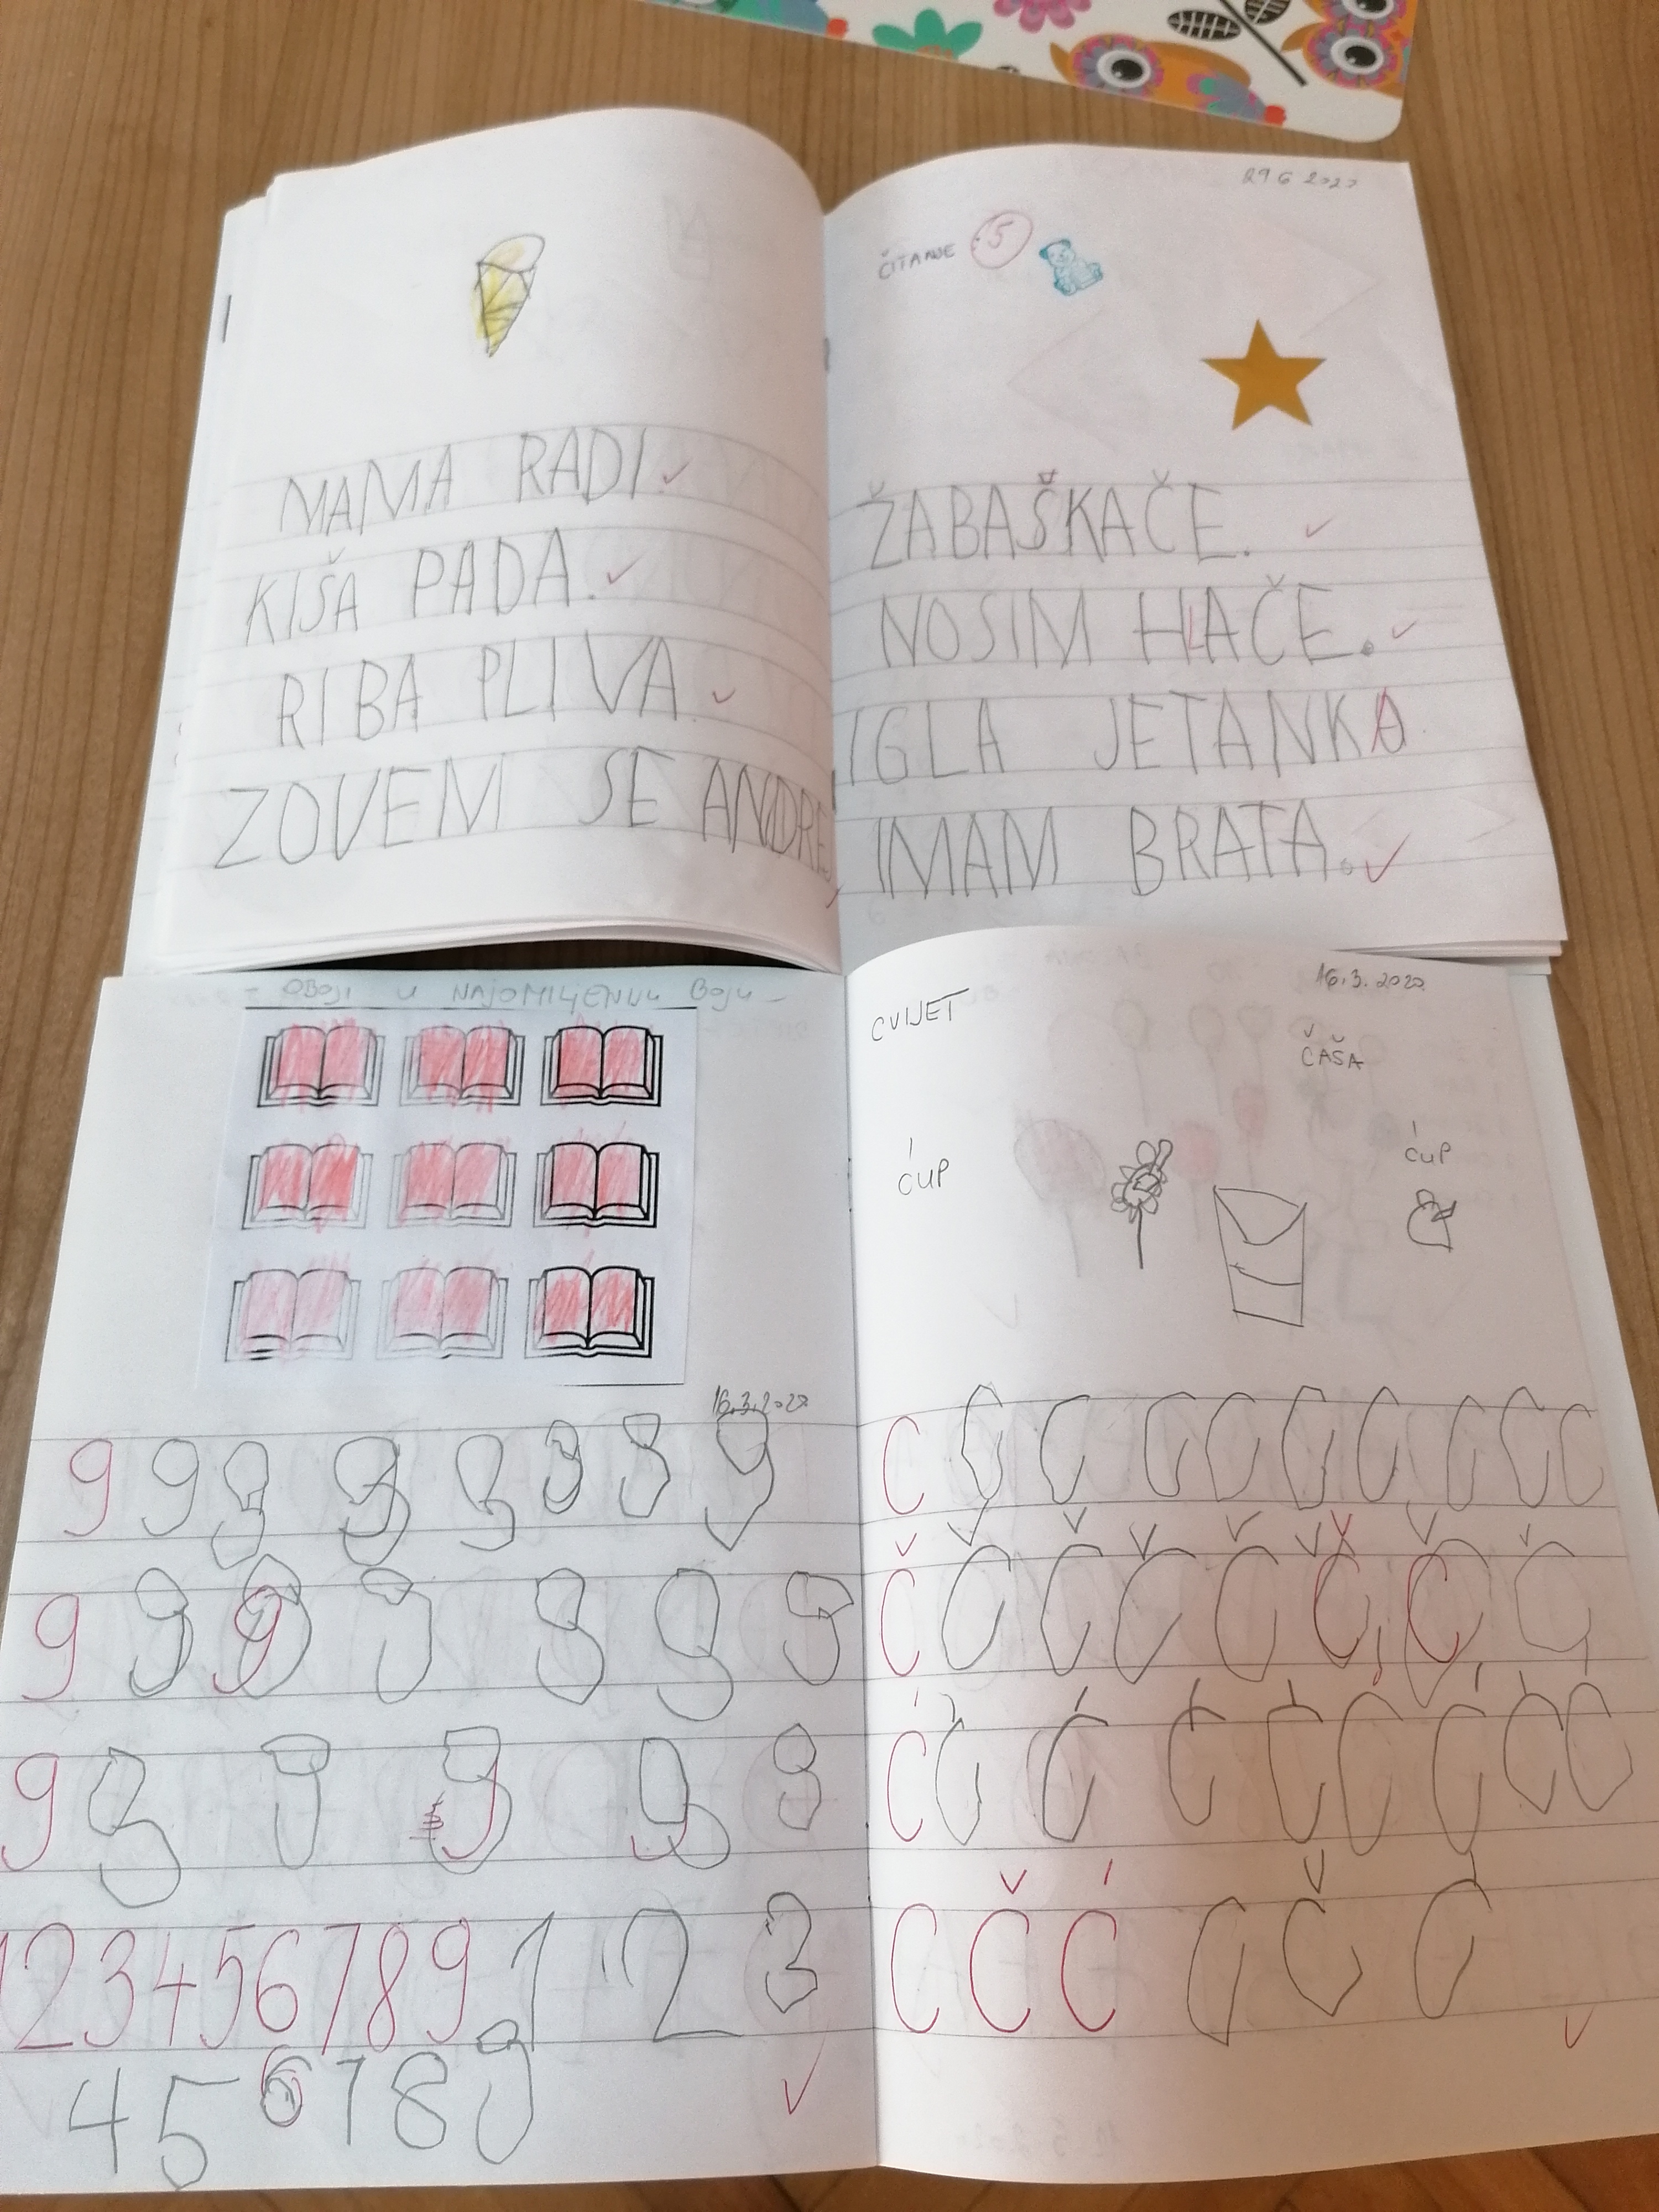 MAMA RADI.
KIŠA PADA.
RIBA PLIVA.
ZOVEM SE ANDREJ
29 6 2022
ČITANJE 5
ŽABAŠKAČE.
NOSIM HLAČE.
IGLA JETANKA
IMAM BRATA.
- OBOJI U NAJOMILJENIJU BOJU -
16.3.2022
9 9 9 9 9 9 9 9
9 9 9 9 9 9 9
9 9 9 9 9 9
1 2 3 4 5 6 7 8 9 1 2 3
4 5 6 7 8 9
16.3.2022
CVIJET
ČAŠA
ĆUP
ĆUP
C C C C C C C C C C
Č Č Č Č Č Č Č Č
Ć Ć Ć Ć Ć Ć Ć Ć Ć
C Č Ć C Č Ć